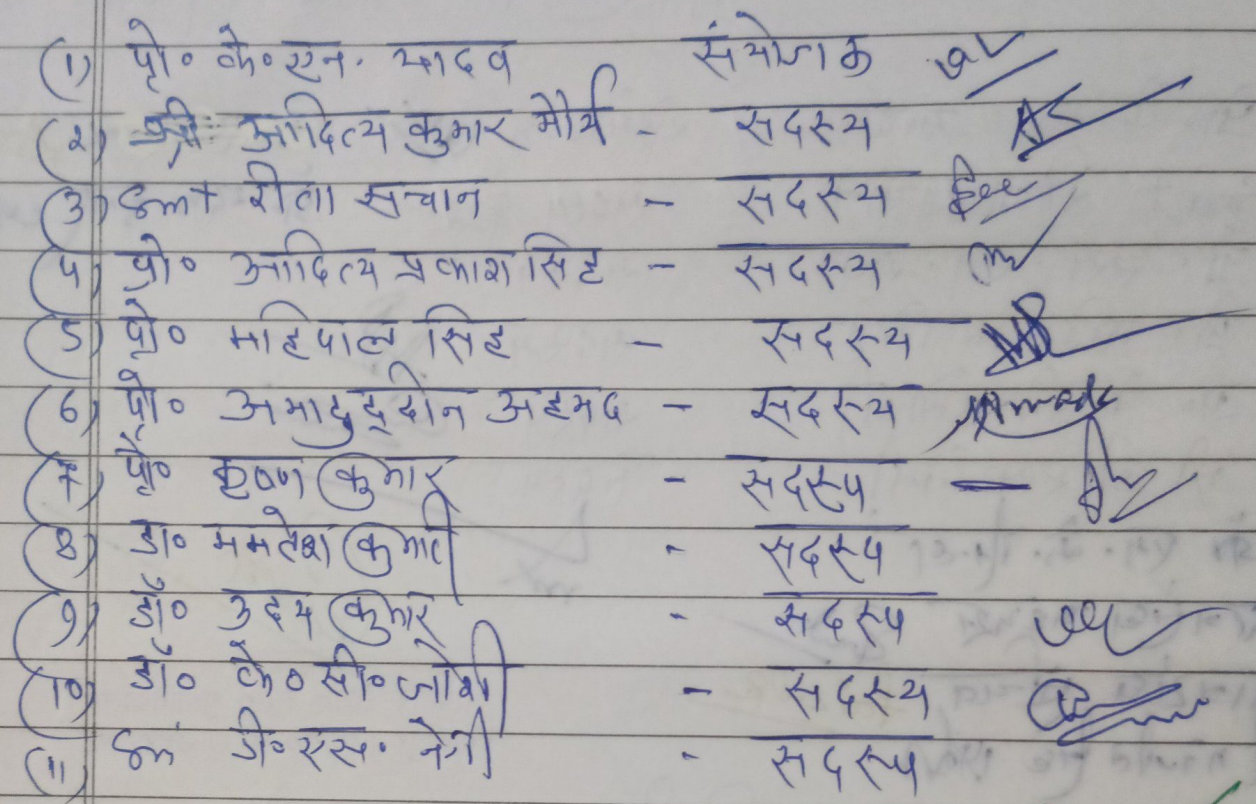 (1) प्रो० के० एन. यादव संयोजक
(2) श्री आदित्य कुमार मौर्य - सदस्य
(3) रीता सचान - सदस्य
(4) प्रो० आदित्य प्रकाश सिंह - सदस्य
(5) प्रो० महिपाल सिंह - सदस्य
(6) प्रो० अमादुद्दीन अहमद - सदस्य
(7) प्रो० कृष्ण कुमार - सदस्य
(8) डा० ममतेश कुमारी - सदस्य
(9) डॉ० उदय कुमार - सदस्य
(10) डॉ० के० सी० जोशी - सदस्य
(11) डी० एस० नेगी - सदस्य